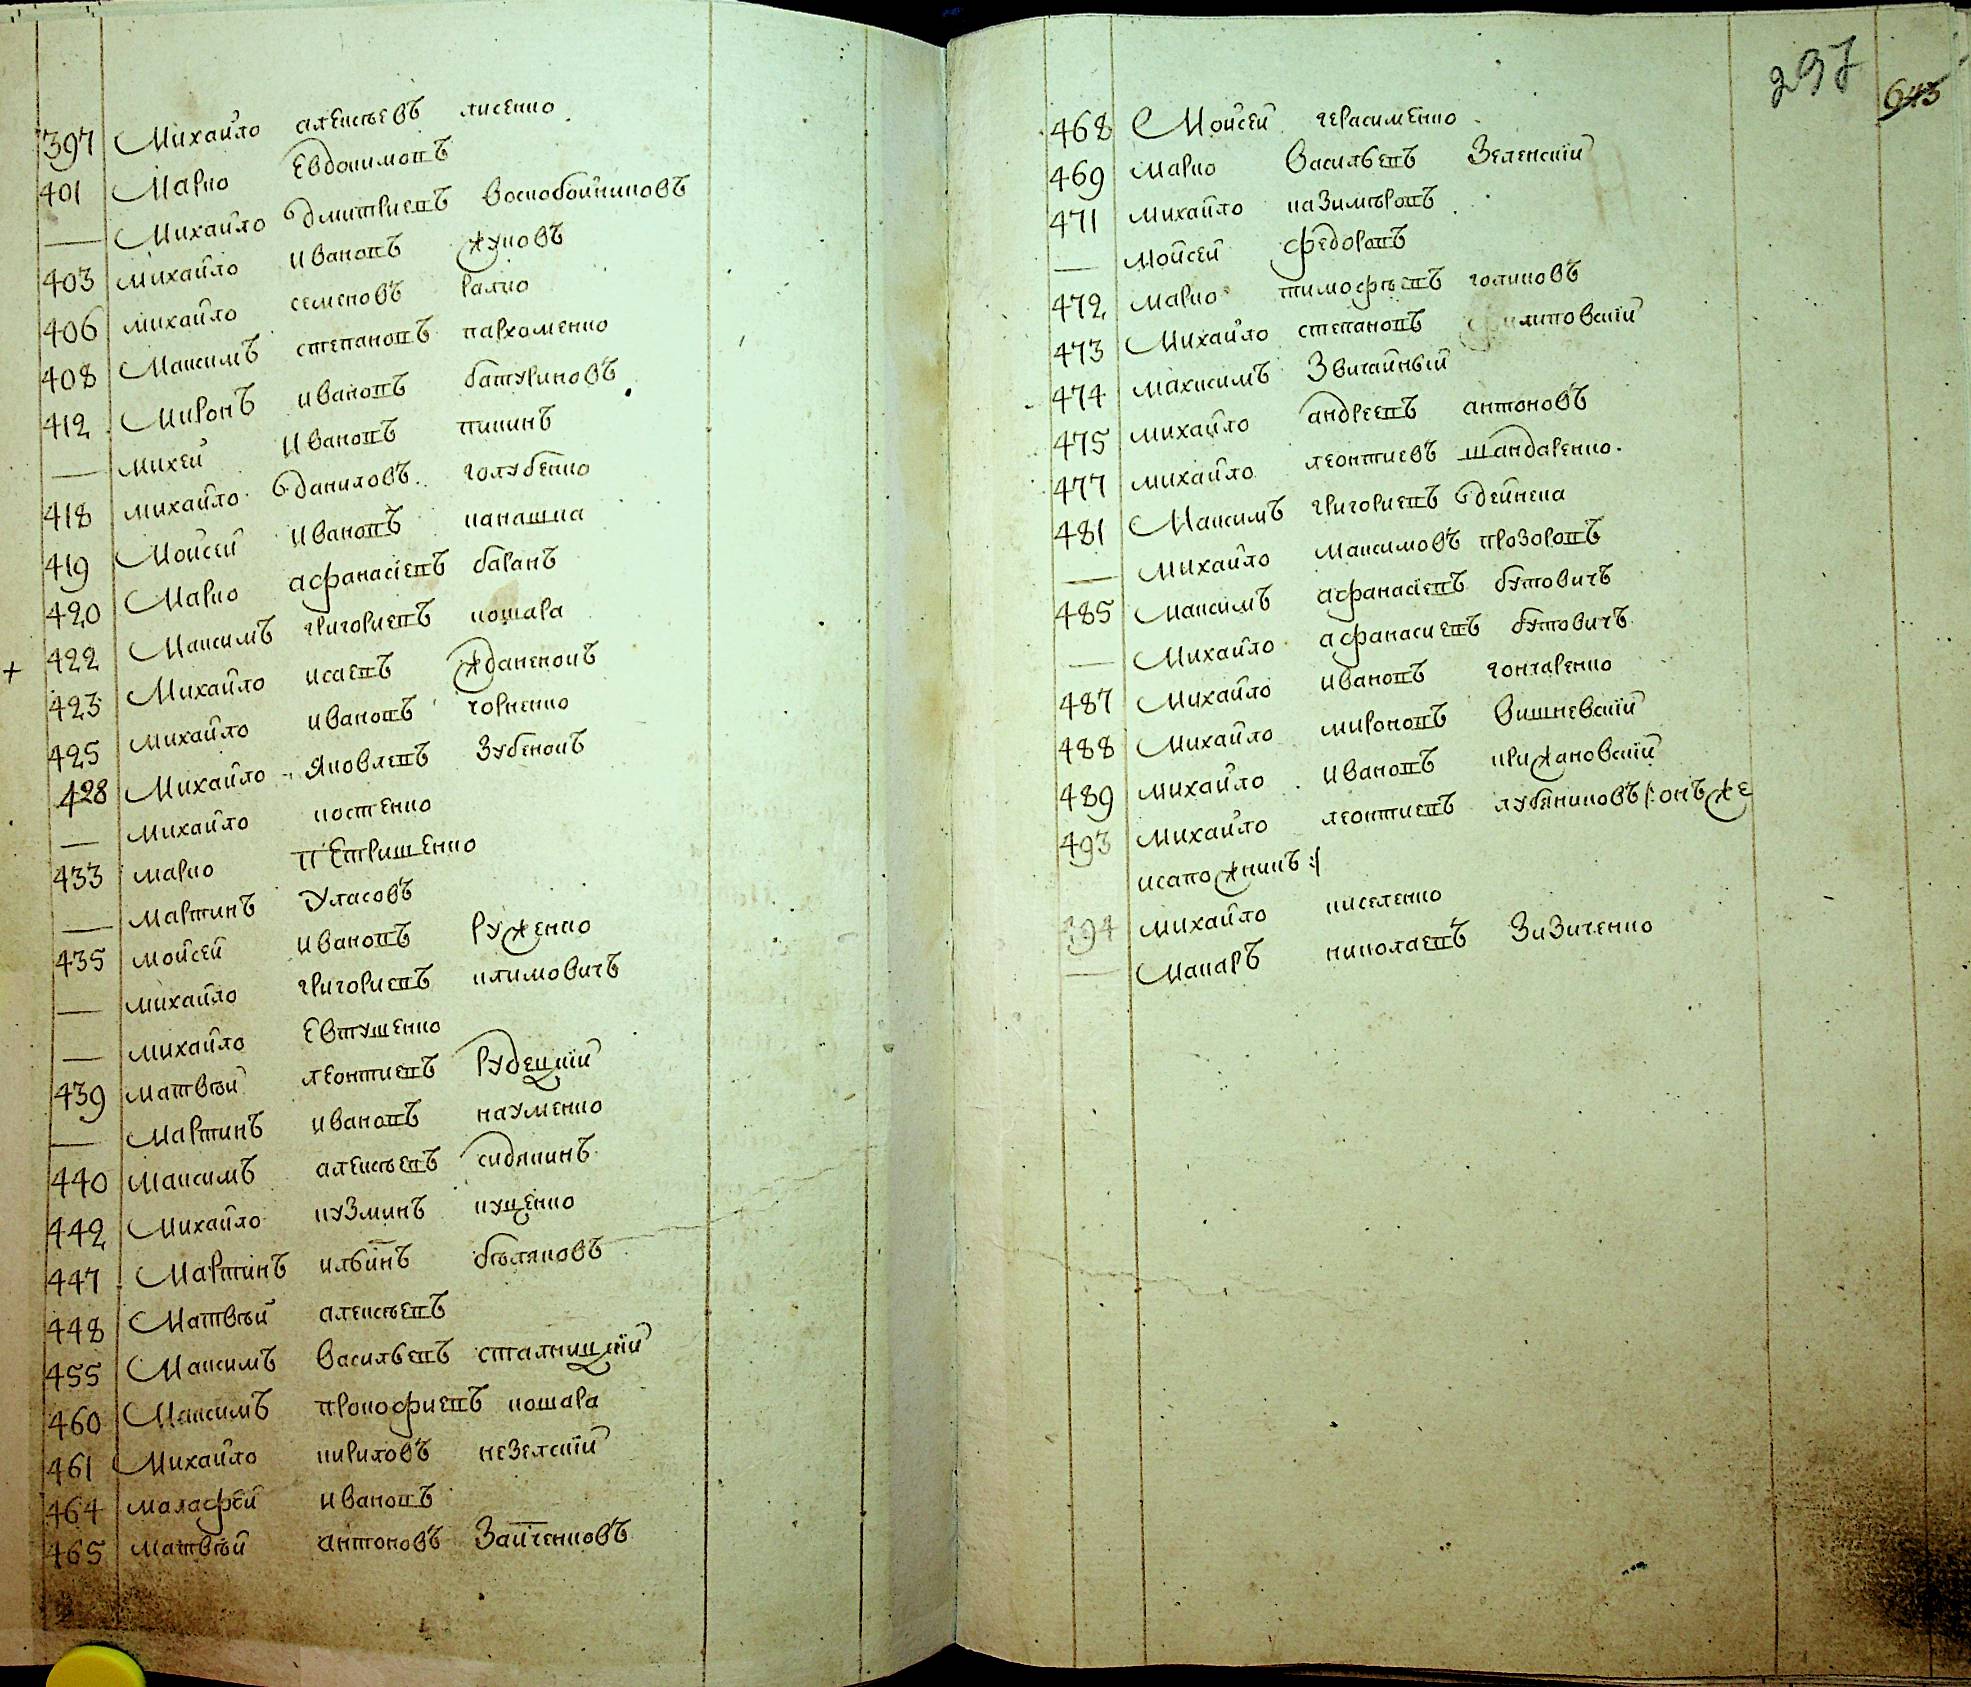 397 Михайло алексѣевъ лисенко
401 Марко Евдокимовъ
— Михайло дмитриевъ воскобойниковъ
403 михайло ивановъ жуковъ
406 михайло семеновъ ралко
408 Максимъ степановъ пархоменко
412 Миронъ ивановъ батуриновъ
— михей ивановъ пикинъ
418 михайло даниловъ голубенко
419 Мойсей ивановъ канашка
420 Марко афанасіевъ баранъ
+ 422 Максимъ григориевъ кошара
423 Михайло исаевъ жданенокъ
425 михайло ивановъ чорненко
428 Михайло яковлевъ Зубенокъ
— михайло костенко
433 марко петришенко
— мартинъ Уласовъ
435 мойсей ивановъ руженко
— михайло григориевъ климовичъ
— михайло Евтушенко
439 матвѣй леонтиевъ рудецкій
— мартинъ ивановъ науменко
440 максимъ алексѣевъ сидякинъ
442 михайло кузминъ куценко
447 мартинъ ильинъ бѣляковъ
448 Матвѣй алексѣевъ
455 Максимъ васильевъ сталницкій
460 Максимъ прокофиевъ кошара
461 Михайло кириловъ незелскій
464 малафей ивановъ
465 матвѣй антоновъ Зайченковъ
297
643
468 Мойсей герасименко
469 марко васильевъ Зеленскій
471 михайло казимѣровъ
— мойсей федоровъ
472 марко тимофѣевъ голиковъ
473 Михайло степановъ филиповскій
474 махисимъ Звичайный
475 михайло андреевъ антоновъ
477 михайло леонтиевъ шандаренко
481 Максимъ григориевъ дейнека
— михайло максимовъ прозоровъ
485 максимъ афанасіевъ бутовичъ
— Михайло афанасиевъ бутовичъ
487 михайло ивановъ гончаренко
488 михайло мироновъ вишневскій
489 михайло ивановъ крижановскій
493 михайло леонтиевъ лубяниковъ /: онъ же
исапожникъ :/
394 михайло киселенко
— Макаръ николаевъ ЗиЗиченко